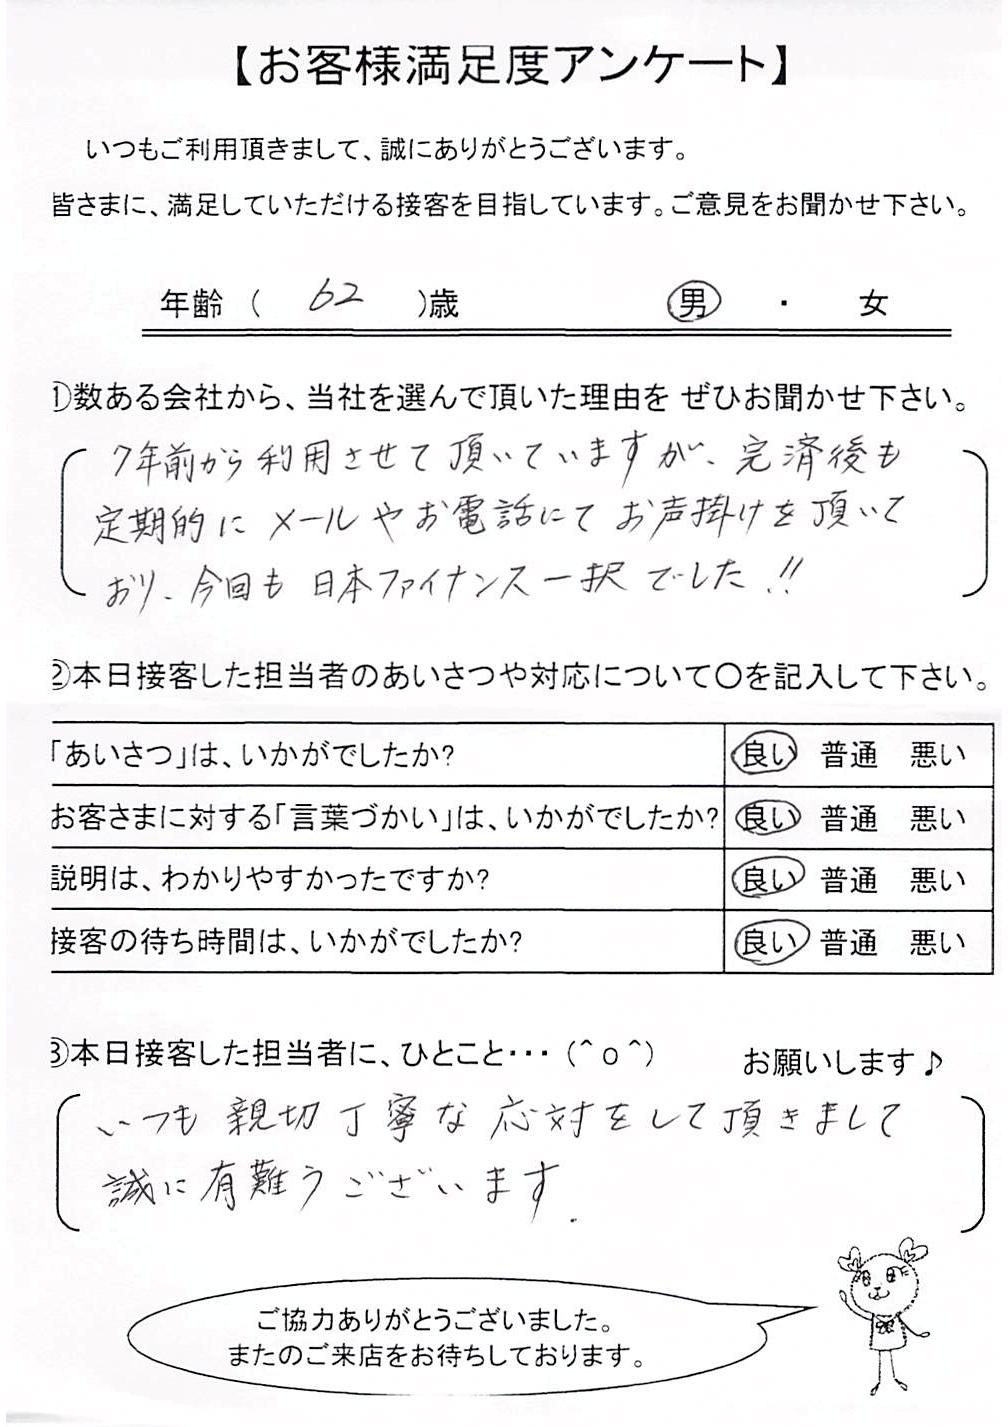 【お客様満足度アンケート】
いつもご利用頂きまして、誠にありがとうございます。
皆さまに、満足していただける接客を目指しています。ご意見をお聞かせ下さい。
年齢 ( 62 )歳 男 ・ 女
①数ある会社から、当社を選んで頂いた理由を ぜひお聞かせ下さい。
7年前から利用させて頂いていますが、完済後も
定期的に メールやお電話にて お声掛けを頂いて
おり、今回も 日本ファイナンス一択でした!!
②本日接客した担当者のあいさつや対応について〇を記入して下さい。
「あいさつ」は、いかがでしたか? 良い 普通 悪い
お客さまに対する「言葉づかい」は、いかがでしたか? 良い 普通 悪い
説明は、わかりやすかったですか? 良い 普通 悪い
接客の待ち時間は、いかがでしたか? 良い 普通 悪い
③本日接客した担当者に、ひとこと・・・ (＾o＾) お願いします♪
いつも 親切丁寧な 応対をして頂きまして
誠に有難うございます.
ご協力ありがとうございました。
またのご来店をお待ちしております。